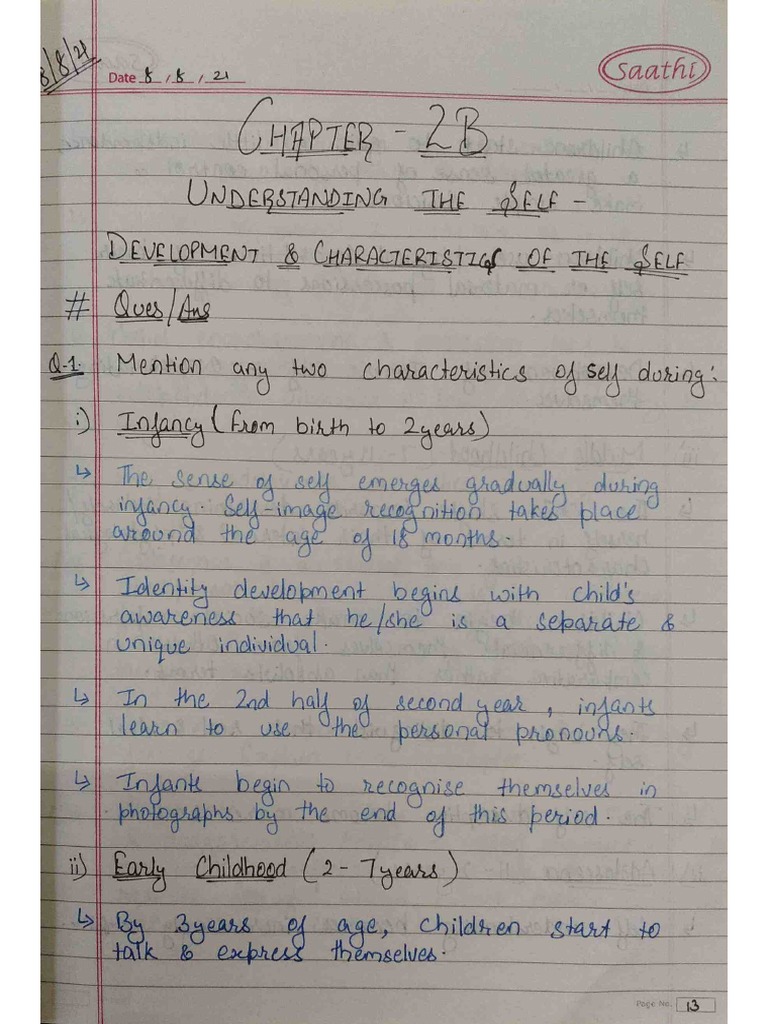 8/8/21
Date 8 / 8 / 21
Saathi
CHAPTER - 2B
UNDERSTANDING THE SELF -
DEVELOPMENT & CHARACTERISTICS OF THE SELF
# Ques/Ans
Q.1. Mention any two characteristics of self during:
i) Infancy (from birth to 2 years)
↳ The sense of self emerges gradually during
infancy. Self-image recognition takes place
around the age of 18 months.
↳ Identity development begins with child's
awareness that he/she is a separate &
unique individual.
↳ In the 2nd half of second year, infants
learn to use the personal pronouns.
↳ Infants begin to recognise themselves in
photographs by the end of this period.
ii) Early Childhood (2 - 7 years)
↳ By 3 years of age, children start to
talk & express themselves.
Page No. 13